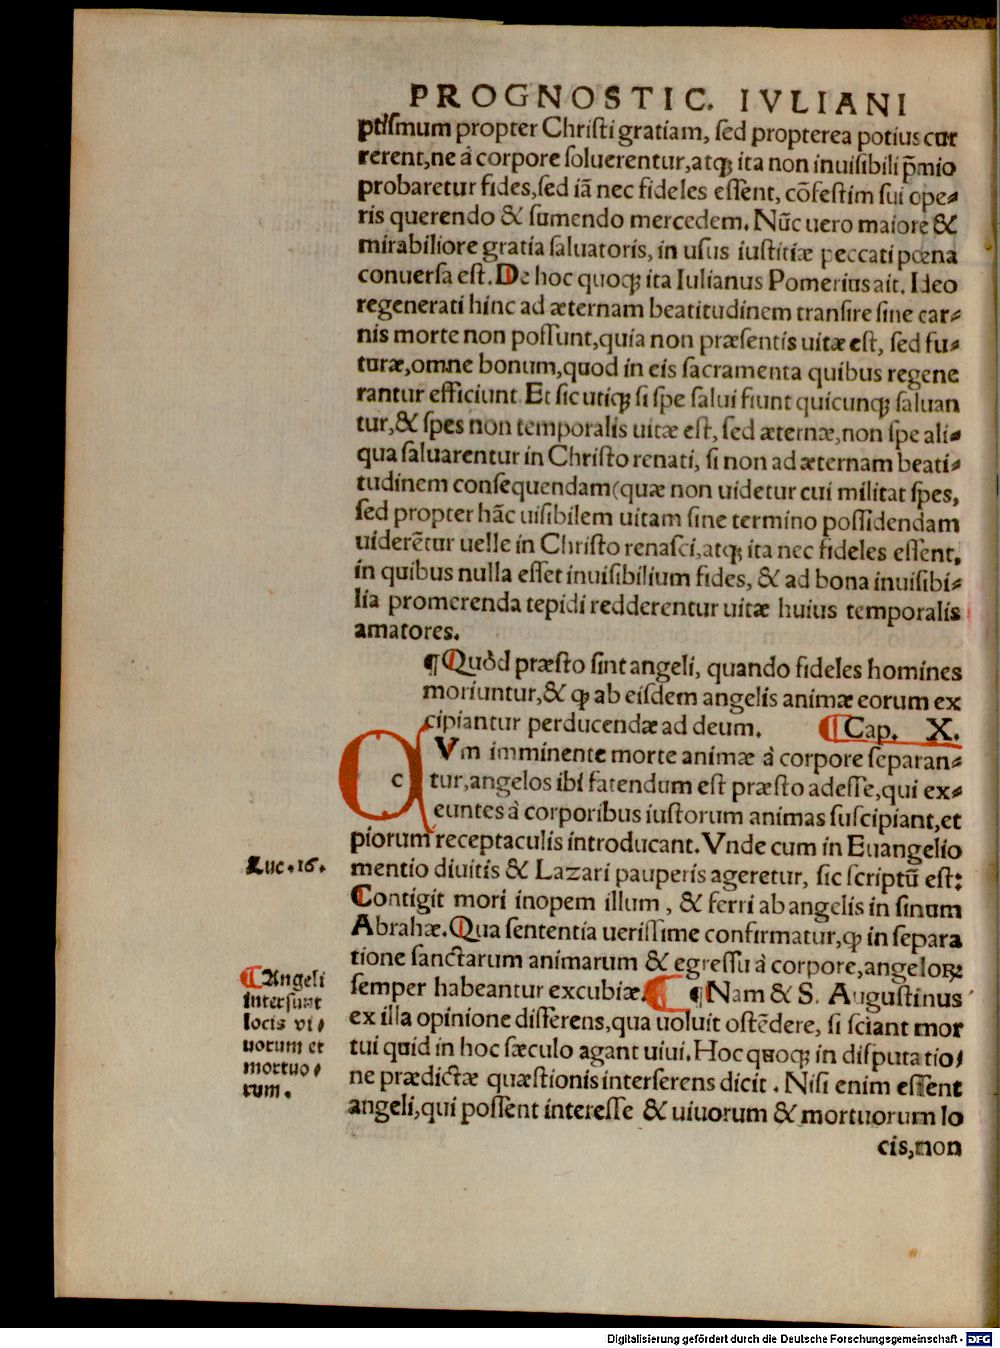 PROGNOSTIC. IVLIANI
ptismum propter Christi gratiam, sed propterea potius cur
rerent, ne à corpore soluerentur, atq; ita non inuisibili p̄mio
probaretur fides, sed iã nec fideles essent, cõfestim sui ope⸗
ris querendo & sumendo mercedem. Nũc uero maiore &
mirabiliore gratia saluatoris, in usus iustitiæ peccati pœna
conuersa est. De hoc quoq; ita Iulianus Pomerius ait. Ideo
regenerati hinc ad æternam beatitudinem transire sine car⸗
nis morte non possunt, quia non præsentis uitæ est, sed fu⸗
turæ, omne bonum, quod in eis sacramenta quibus regene
rantur efficiunt. Et sic utiq; si spe salui fiunt quicunq; saluan
tur, & spes non temporalis uitæ est, sed æternæ, non spe ali⸗
qua saluarentur in Christo renati, si non ad æternam beati⸗
tudinem consequendam (quæ non uidetur cui militat spes,
sed propter hãc uisibilem uitam sine termino possidendam
uiderẽtur uelle in Christo renasci, atq; ita nec fideles essent,
in quibus nulla esset inuisibilium fides, & ad bona inuisibi⸗
lia promerenda tepidi redderentur uitæ huius temporalis
amatores.
¶ Quòd præsto sint angeli, quando fideles homines
moriuntur, & ꝙ ab eisdem angelis animæ eorum ex
cipiantur perducendæ ad deum. ¶ Cap. X.
C Vm imminente morte animæ à corpore separan⸗
tur, angelos ibi fatendum est præsto adesse, qui ex⸗
euntes à corporibus iustorum animas suscipiant, et
piorum receptaculis introducant. Vnde cum in Euangelio
Luc. 16.
mentio diuitis & Lazari pauperis ageretur, sic scriptũ est:
Contigit mori inopem illum, & ferri ab angelis in sinum
Abrahæ. Qua sententia uerissime confirmatur, ꝙ in separa
tione sanctarum animarum & egressu à corpore, angeloꝝ
semper habeantur excubiæ. ¶ Nam & S. Augustinus
ex illa opinione differens, qua uoluit ostẽdere, si sciant mor
tui quid in hoc sæculo agant uiui. Hoc quoq; in disputatio⸗
ne prædictæ quæstionis interserens dicit. Nisi enim essent
angeli, qui possent interesse & uiuorum & mortuorum lo
¶ Angeli
intersunt
locis vi⸗
uorum et
mortuo⸗
rum.
cis, non
Digitalisierung gefördert durch die Deutsche Forschungsgemeinschaft - DFG